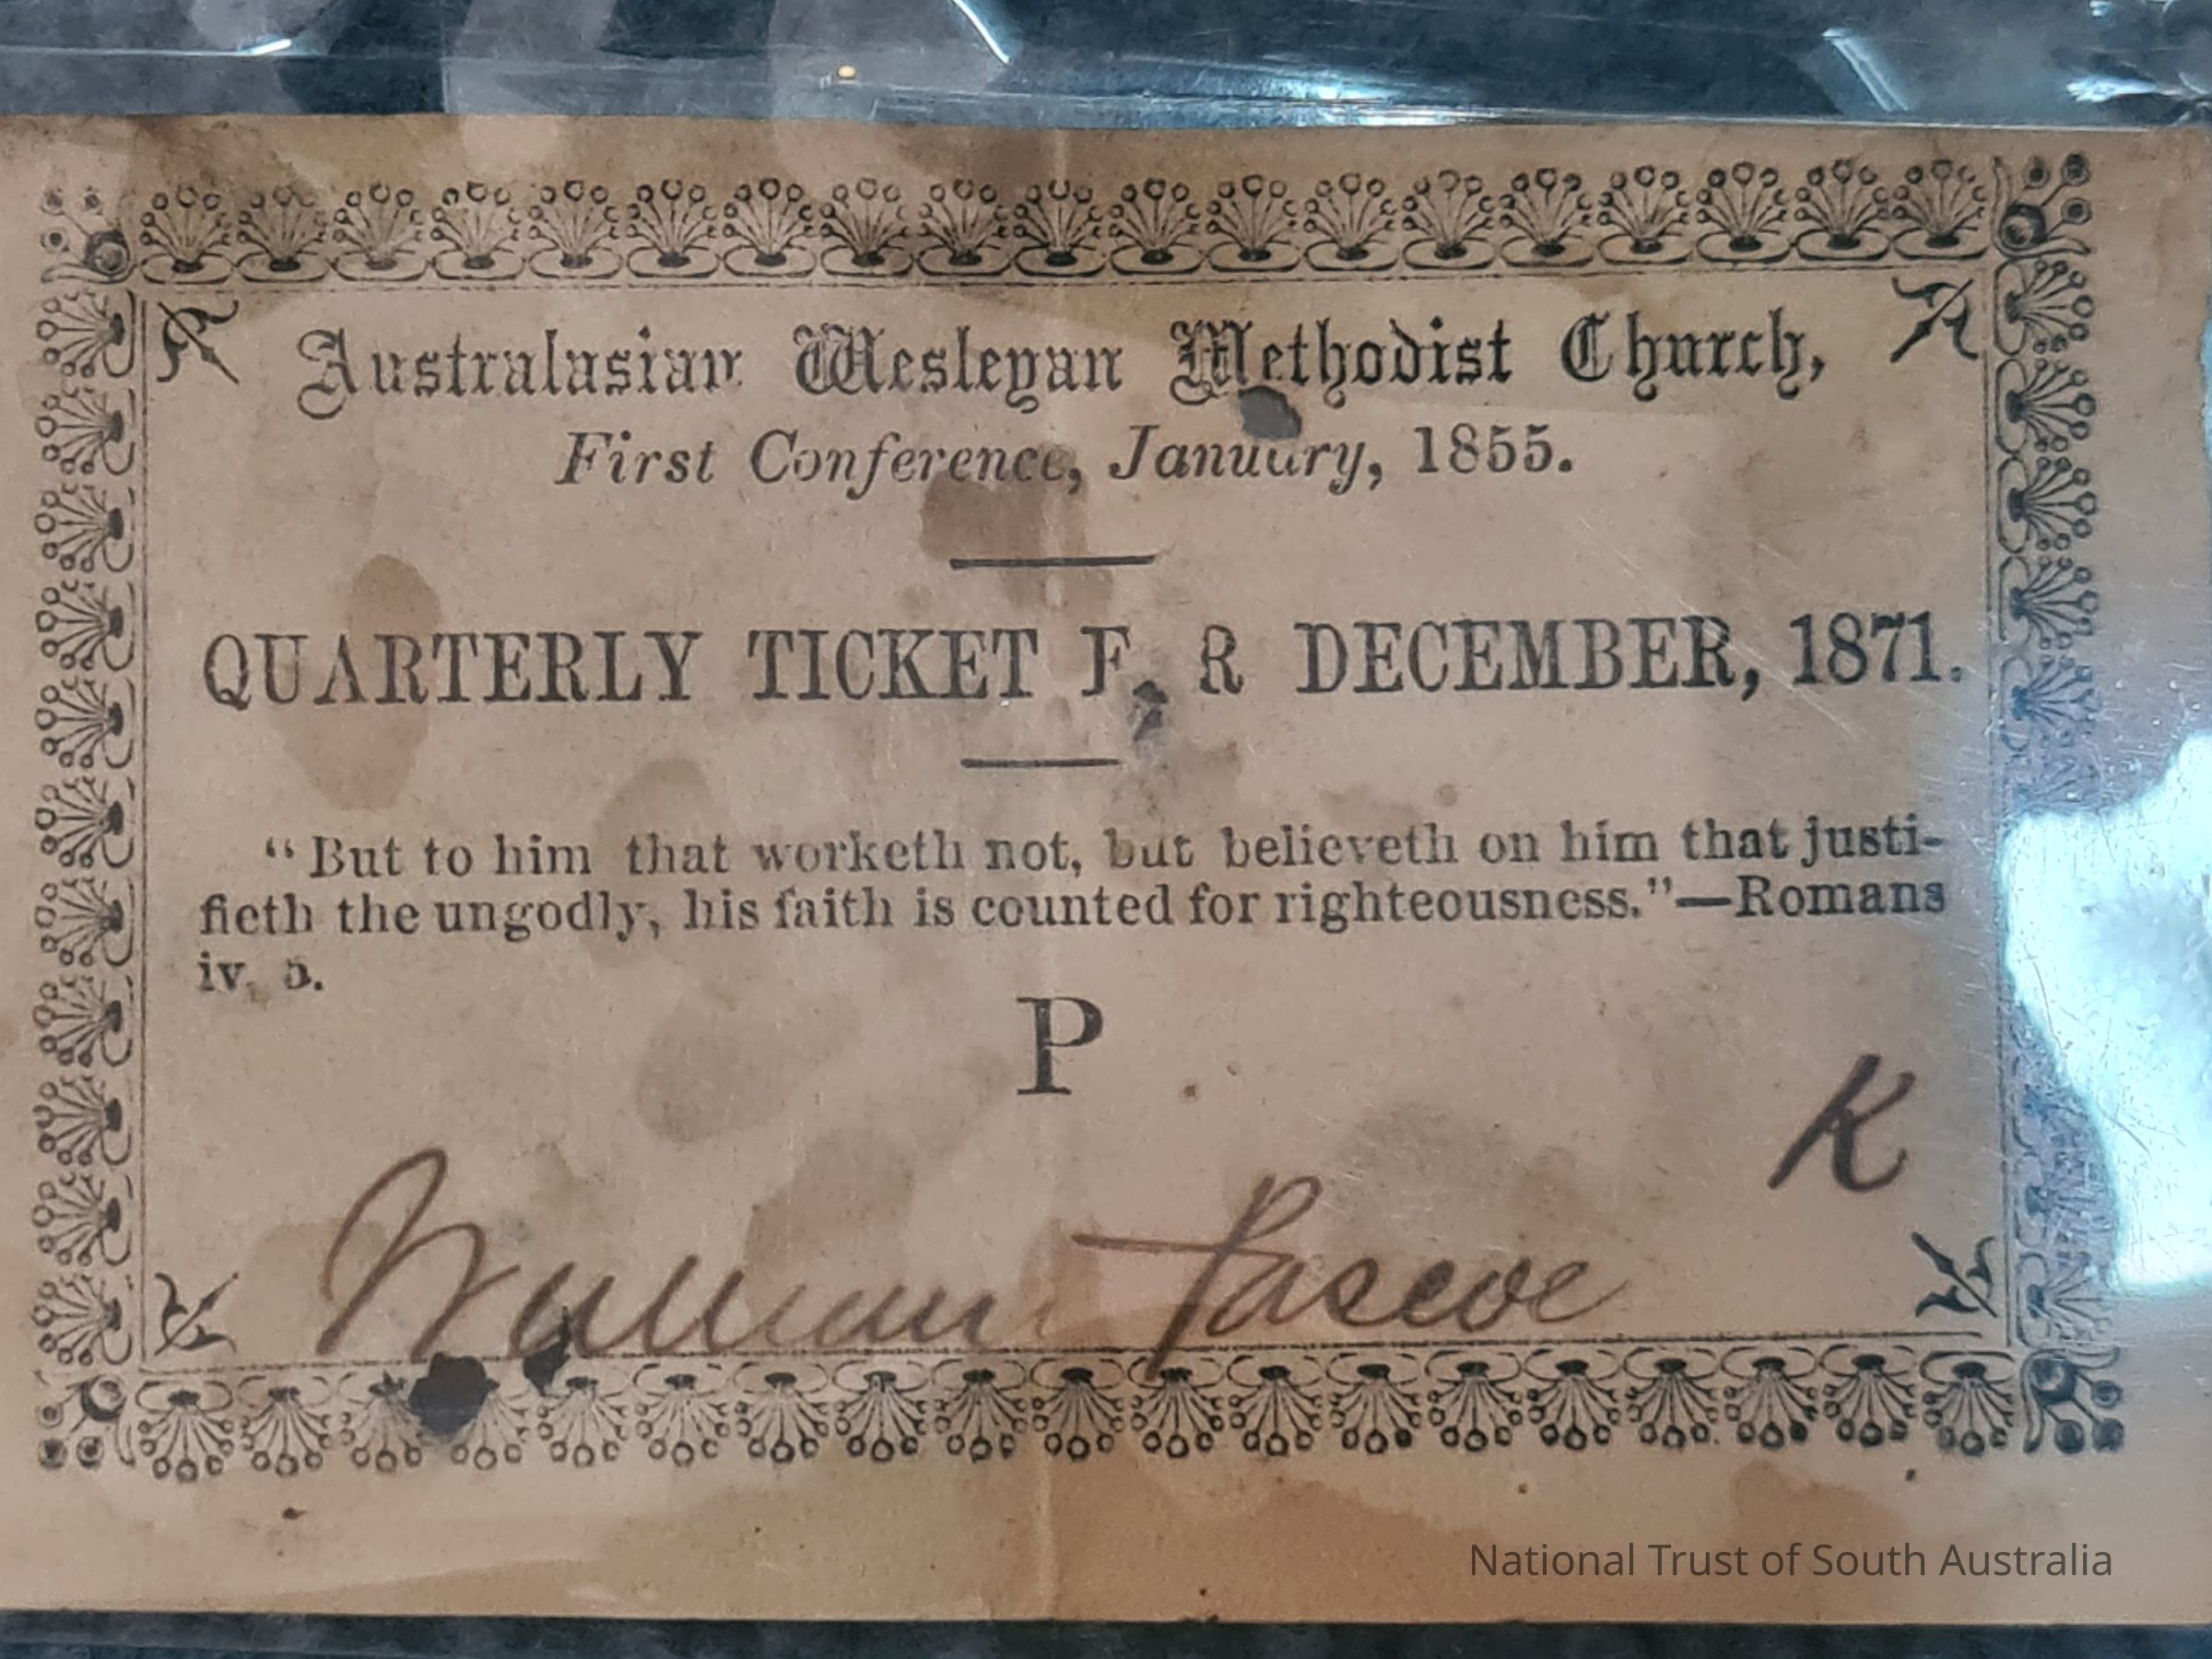 Australasian Wesleyan Methodist Church,
First Conference, January, 1855.
QUARTERLY TICKET F R DECEMBER, 1871.
“But to him that worketh not, but believeth on him that justi-
fieth the ungodly, his faith is counted for righteousness.”—Romans
iv. 5.
P
K
William Pascoe
National Trust of South Australia